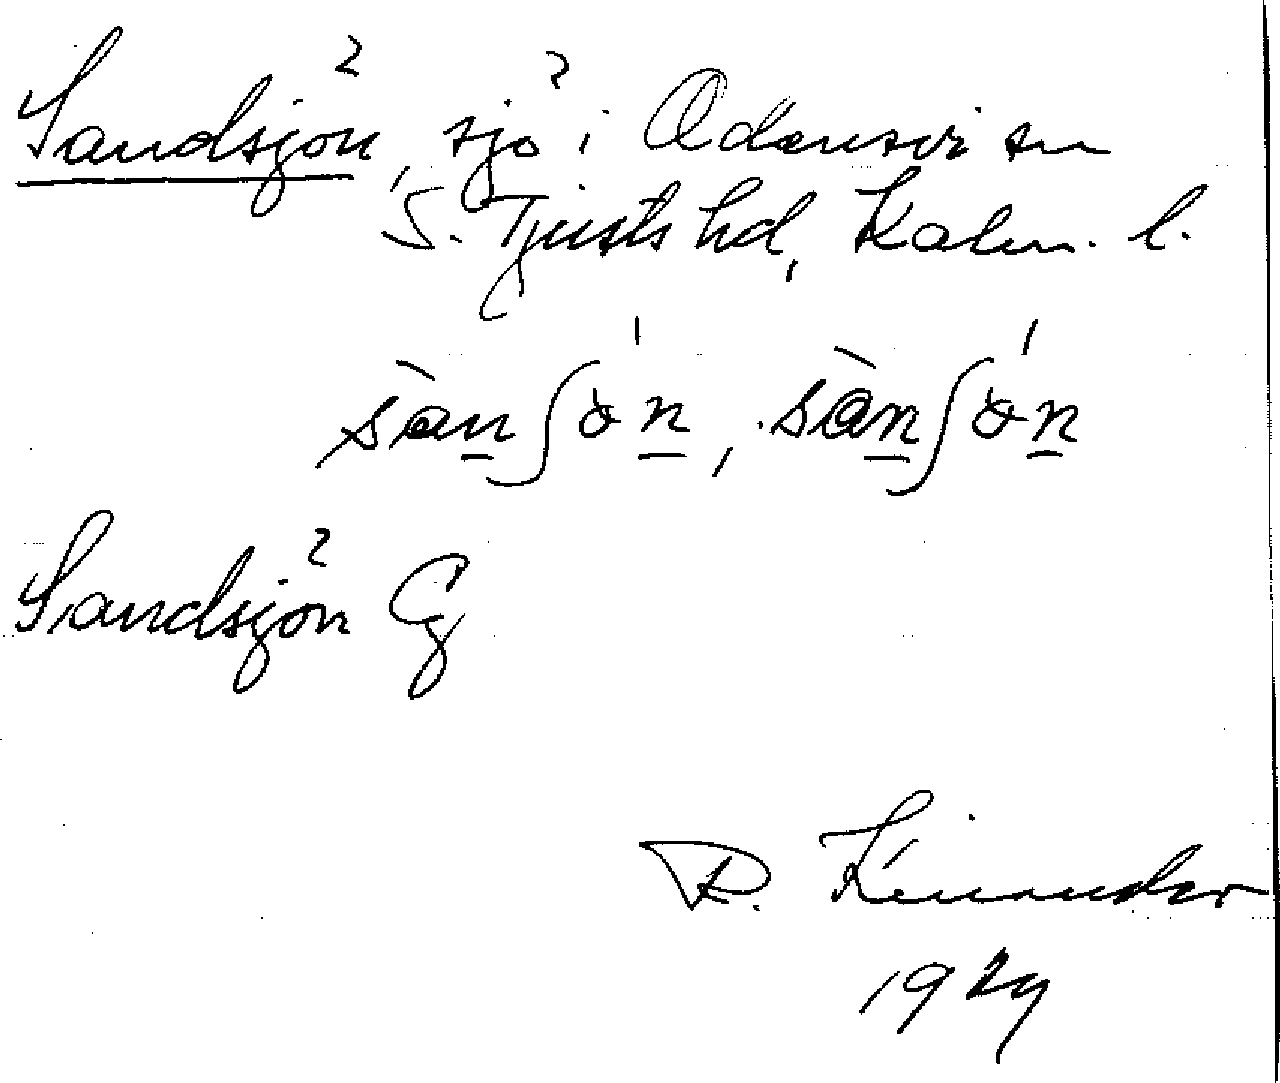 Sandsjön, sjö i Odensvi sn
S. Tjusts hd, Kalm. l.
sànʃȯn, sànʃȯn
Sandsjön Cg
R. Kinander
1929